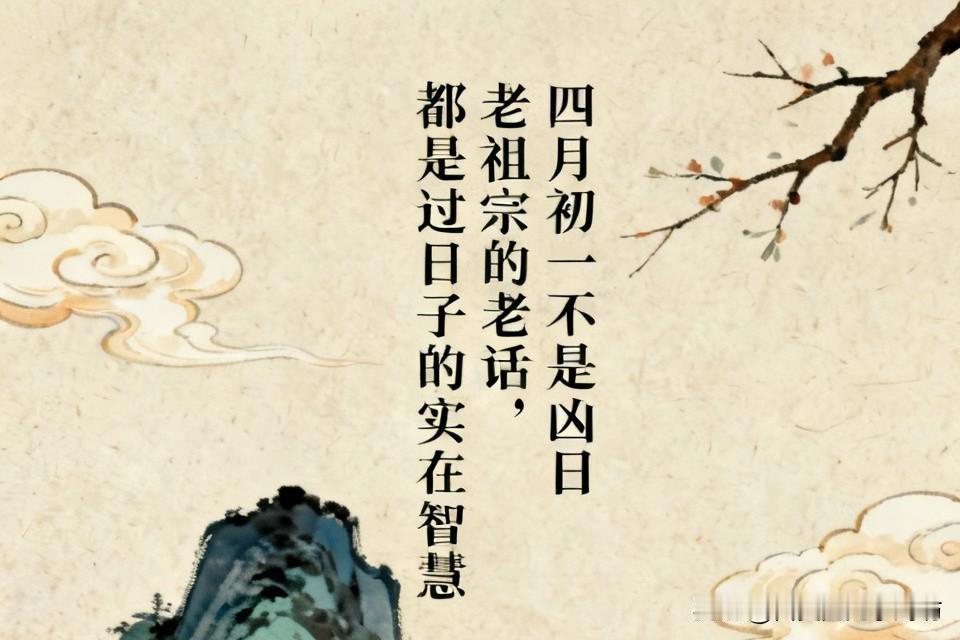 四月初一不是凶日
老祖宗的老话，
都是过日子的实在智慧